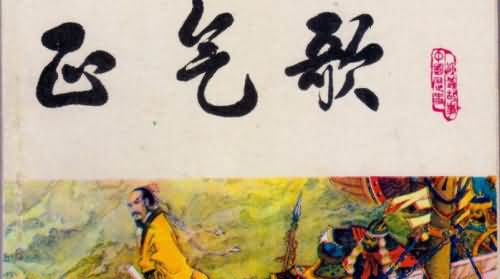 正气歌